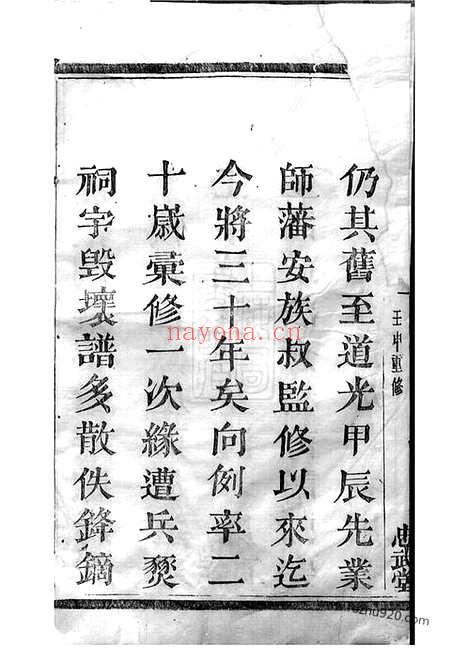 壬申重修
忠武堂
仍其舊至道光甲辰先業
師藩安族叔監修以來迄
今將三十年矣向例率二
十歲彙修一次緣遭兵燹
祠宇毀壞譜多散佚鋒鏑
nayona.cn